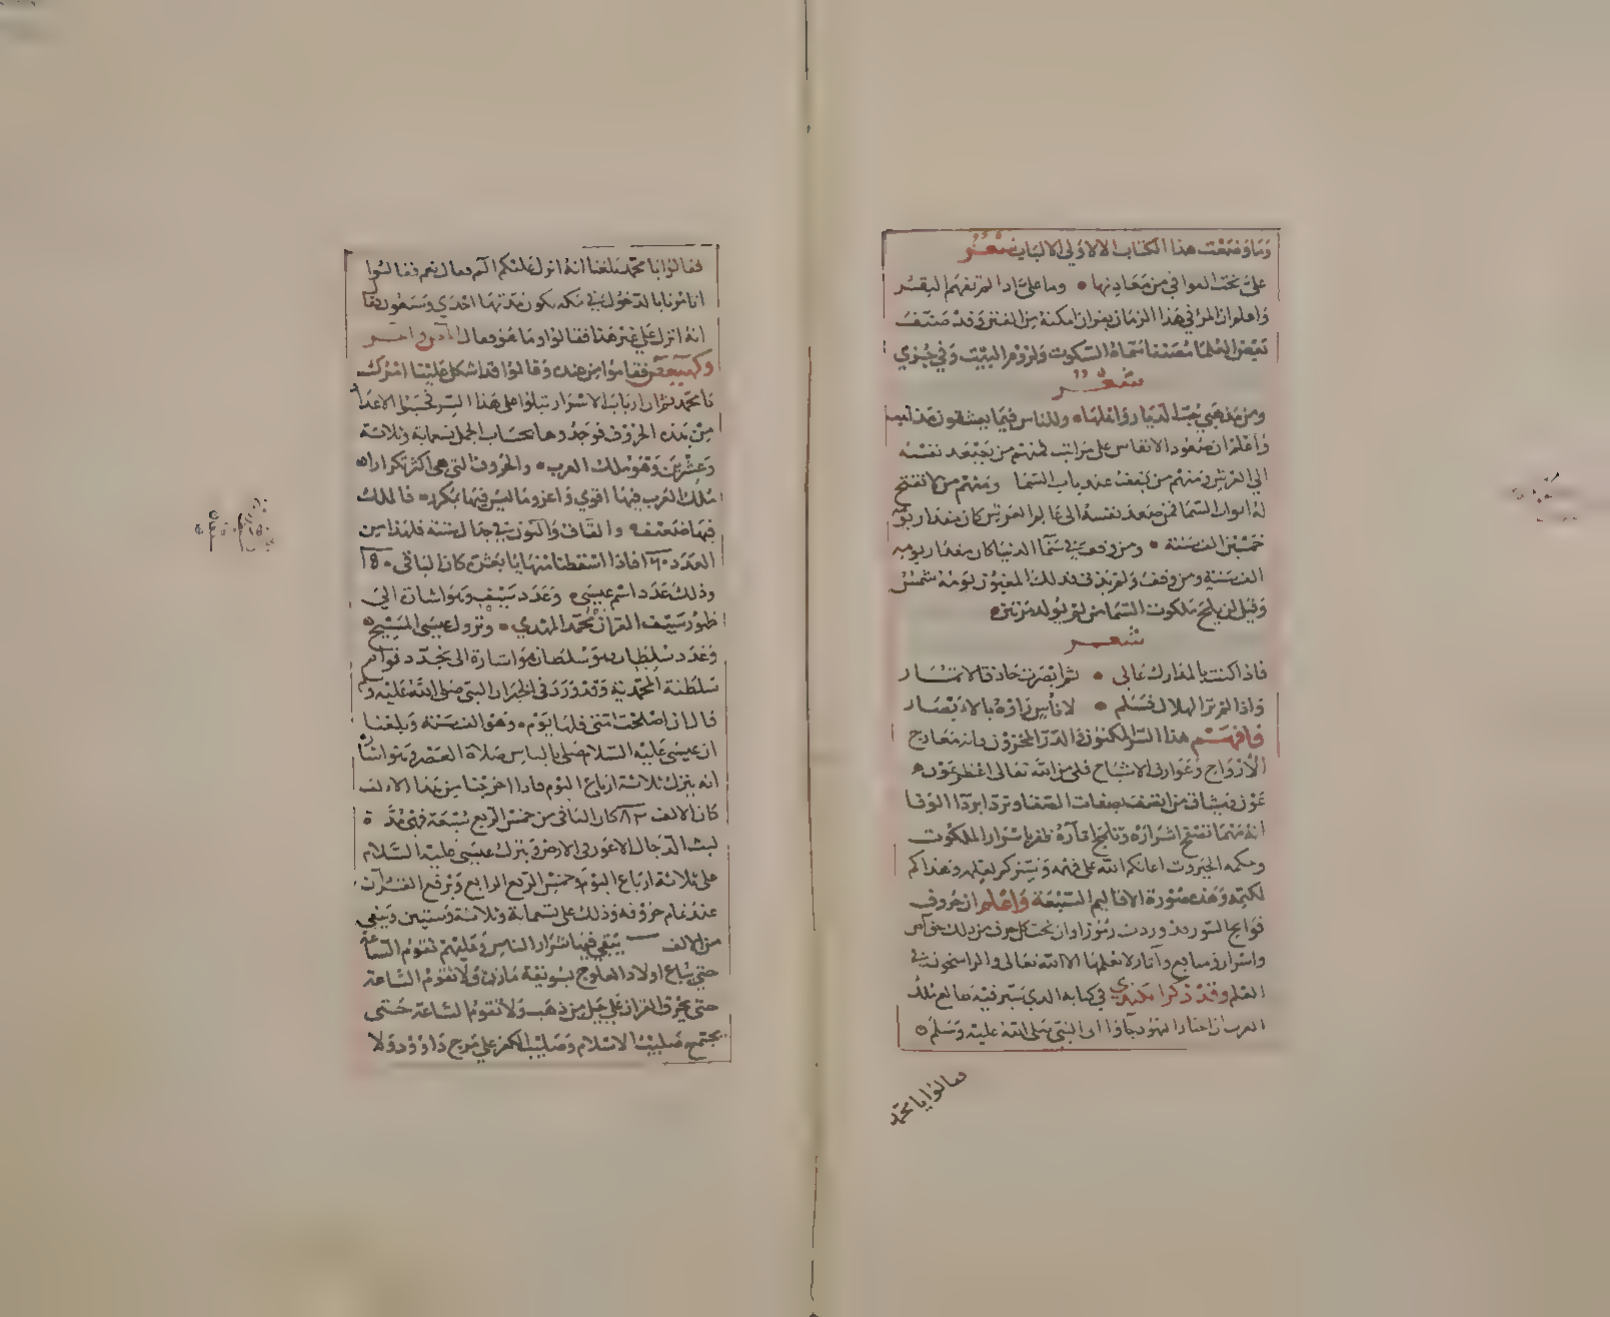 وما وضعت هذا الكتاب الا لاولي الالباب شعر
علي نحت القوافي من معادنها • وما علي اذا لم تفهم البقر
واعلموا ان المرء في هذا الزمان بفران امكنه من الفتن وقد صنف
بعض العلما مصنفا سماه السكوت ولزوم البيت وفي جزي
شعر
ومن مذهبي حب الديار واهلها • وللناس فيما يعشقون مذاهب
واعلم ان صعود الانفاس علي مراتب فمنهم من يصعد نفسه
الي العرش ومنهم من يقف عند باب السما ومنهم من لا تفتح
له ابواب السما فمن صعد نفسه الي عالم العرش كان مقدار يومه
خمسين الف سنة • ومن وقف في سما الدنيا كان مقدار يومه
الف سنة ومن وقف ولم ينفذ فذلك المغبون يومه شمس
وقيل لن يلج ملكوت السما من لم يولد مرتين
شعر
فاذا كنت بالمدارك عالي • ثم ابصرت حاذقا لا تمار
واذا لم تر الهلال فسلم • لاناس راوه بالابصار
فافهم هذا السر المكنون والدر المخزون فانه معارج
الارواح وعوارف الاشباح فلي من الله تعالي اعظم عون
عون فيشاف من اتصف بصفات الصفا وتردا بردا الوفا
انه مهما تفتح اسراره وتاجج انواره ظفر باسرار الملكوت
وحكمه الجبروت اعانكم الله علي فهمه ويسركم لعلمه وهداكم
لكتمه وهذه صورة الاقاليم السبعة واعلم ان حروف
فواتح السور قد وردت رموز وان تحت كل حرف من ذلك خواص
واسرار ومنافع واثار لا يعلمها الا الله تعالى والراسخون في
العلم وقد ذكر الكندي في كتابه الذي سير فيه طالع ملك
العرب ان احبار اليهود جاؤا الى النبي صلى الله عليه وسلم
فقالوا يا محمد
فقالوا يا محمد بلغنا انه انزل عليكم الم فقال نعم فقالوا
اتامرنا بالدخول في ملة يكون مدتها احدي وسبعون فقال
انه انزل علي غير هذا فقالوا وما هو فقال المص والمر
وكهيعص فقاموا من عنده وقالوا قد اشكل علينا امرك
يا محمد ثم ان ارباب الاسرار تبلوا علي هذا السر فحسبوا الاعداد
من هذه الحروف فوجدوها بحساب الجمل تسعماية وثلاثة
وعشرين وهو ملك العرب • والحروف التي هي اكثر تكرارا
ملك العرب فيها اقوي واعز وما ليس فيها بمكرر فالملك
فيها ضعيف والقاف والنون في جدال سنة فلهذا من
العدد ١٦٠ فاذا اسقطنا منها بعشرة كان الباقي ١٥٠
وذلك عدد اسم عيسى وعدد سيف وهو اشارة الي
ظهور سيف القران محمد المهدي • ونزول عيسى المسيح
وعدد سلطان هو سلطان هو اشارة الى تجدد قوام
سلطنة المحمدية وقد ورد في الخبر ان النبي صلى الله عليه وسلم
قال ان اصلحت امتي فلها يوم وهو الف سنة وبلغنا
ان عيسى عليه السلام صلي بالناس صلاة العصر وهو اشارة
انه ينزل ثلاثة ارباع اليوم فاذا اخرجنا من هذا الالف
كان الباقي من خمس الربع سبعة فهي مدة
لبث الدجال الاعور في الارض وينزل عيسى عليه السلام
على ثلاثة ارباع اليوم وخمس الربع الرابع ويرفع القران
عند تمام حروفه وذلك على تسماية وثلاثة وستين ويبقي
من الالف يبقي فيها شرار الناس وعليهم تقوم الساعة
حتي يباع اولاد العلوج ولا تقوم الساعة
حتي يحرق الفرات علي جبل من ذهب ولا تقوم الساعة حتى
يجتمع صليب الاسلام وصليب الكفر علي مرج داوود ولا